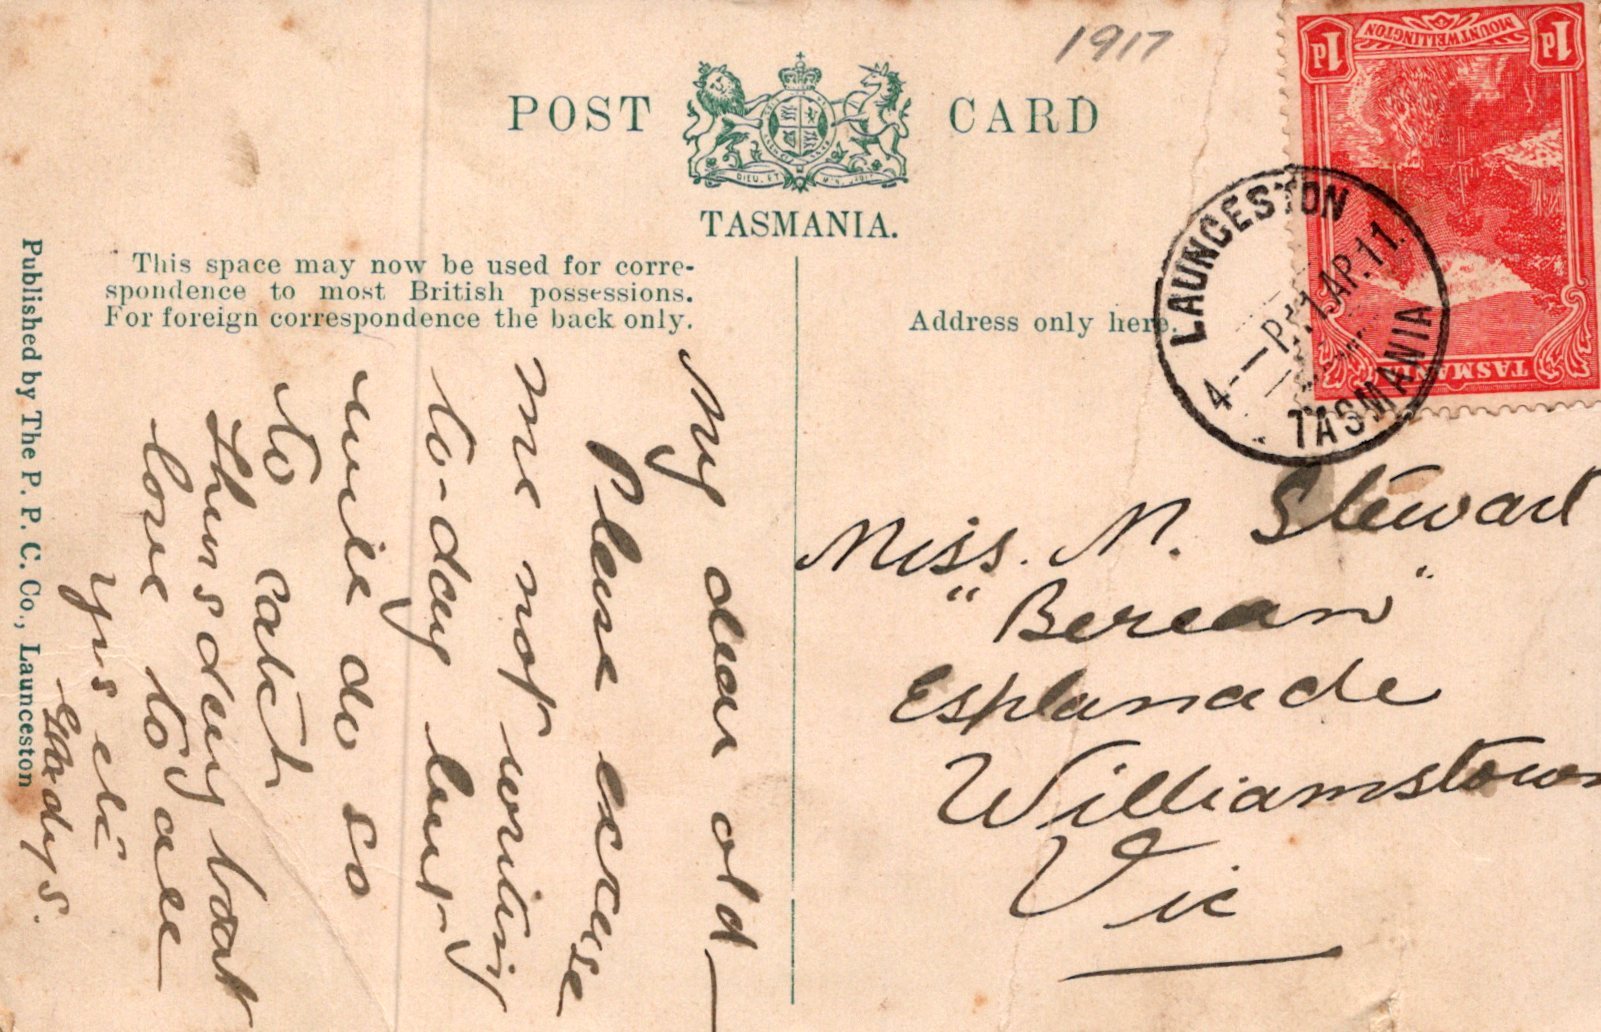 1917
POST CARD
DIEU ET MON DROIT
TASMANIA.
This space may now be used for corre-
spondence to most British possessions.
For foreign correspondence the back only.
Address only here.
Published by The P. P. C. Co., Launceston
1d MOUNT WELLINGTON 1d
TASMANIA
LAUNCESTON
4- P. 11 AP. 11
TASMANIA
My dear old
Please excuse
me not writing
to-day but I
will do so
to catch
Thursday boat
love to all
Yrs etc
Gladys.
Miss. M. Stewart
"Berean"
Esplanade
Williamstown
Vic